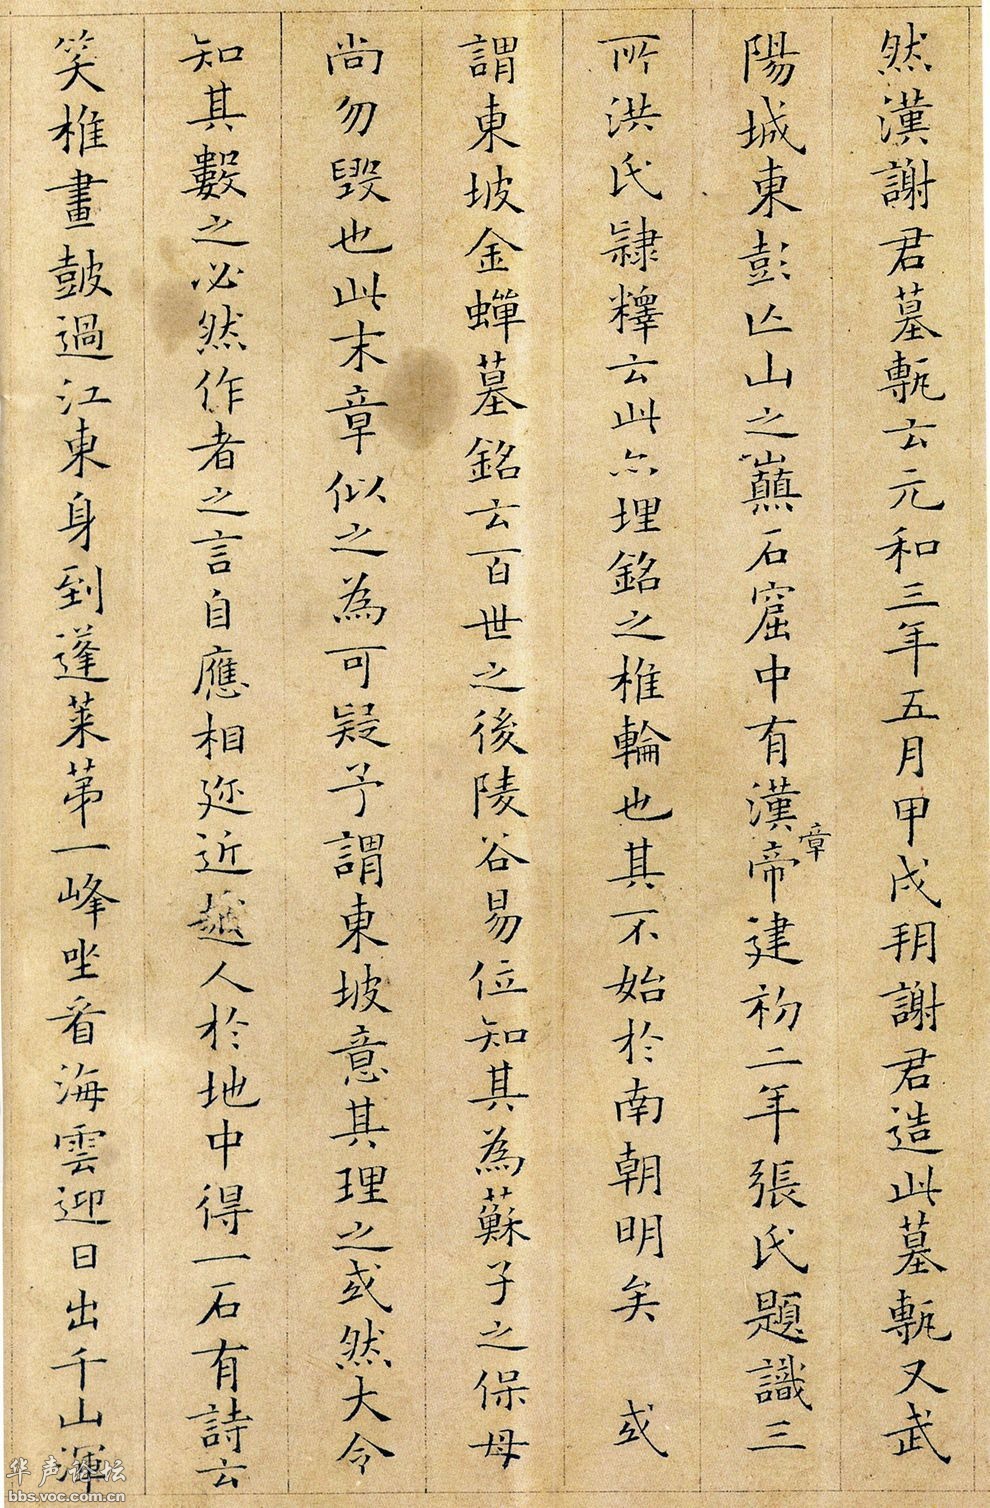 然漢謝君墓甎云元和三年五月甲戌朔謝君造此墓甎又武
陽城東彭亡山之巔石窟中有漢章帝建初二年張氏題識三
所洪氏隸釋云此亦埋銘之椎輪也其不始於南朝明矣 或
謂東坡金蟬墓銘云百世之後陵谷易位知其為蘇子之保母
尚勿毀也此末章似之為可疑予謂東坡意其理之或然大令
知其數之必然作者之言自應相迩近越人於地中得一石有詩云
笑椎畫鼓過江東身到蓬萊第一峰坐看海雲迎日出千山渾
华声论坛
bbs.voc.com.cn